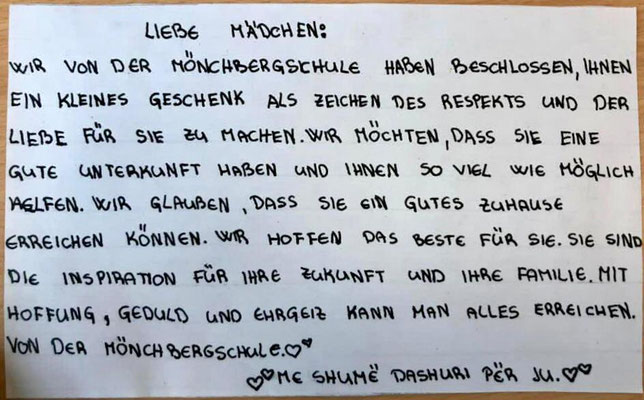 LIEBE MÄDCHEN:
WIR VON DER MÖNCHBERGSCHULE HABEN BESCHLOSSEN, IHNEN
EIN KLEINES GESCHENK ALS ZEICHEN DES RESPEKTS UND DER
LIEBE FÜR SIE ZU MACHEN. WIR MÖCHTEN, DASS SIE EINE
GUTE UNTERKUNFT HABEN UND IHNEN SO VIEL WIE MÖGLICH
HELFEN. WIR GLAUBEN, DASS SIE EIN GUTES ZUHAUSE
ERREICHEN KÖNNEN. WIR HOFFEN DAS BESTE FÜR SIE. SIE SIND
DIE INSPIRATION FÜR IHRE ZUKUNFT UND IHRE FAMILIE. MIT
HOFFUNG, GEDULD UND EHRGEIZ KANN MAN ALLES ERREICHEN.
VON DER MÖNCHBERGSCHULE.♡♡
♡♡ME SHUMË DASHURI PËR JU.♡♡